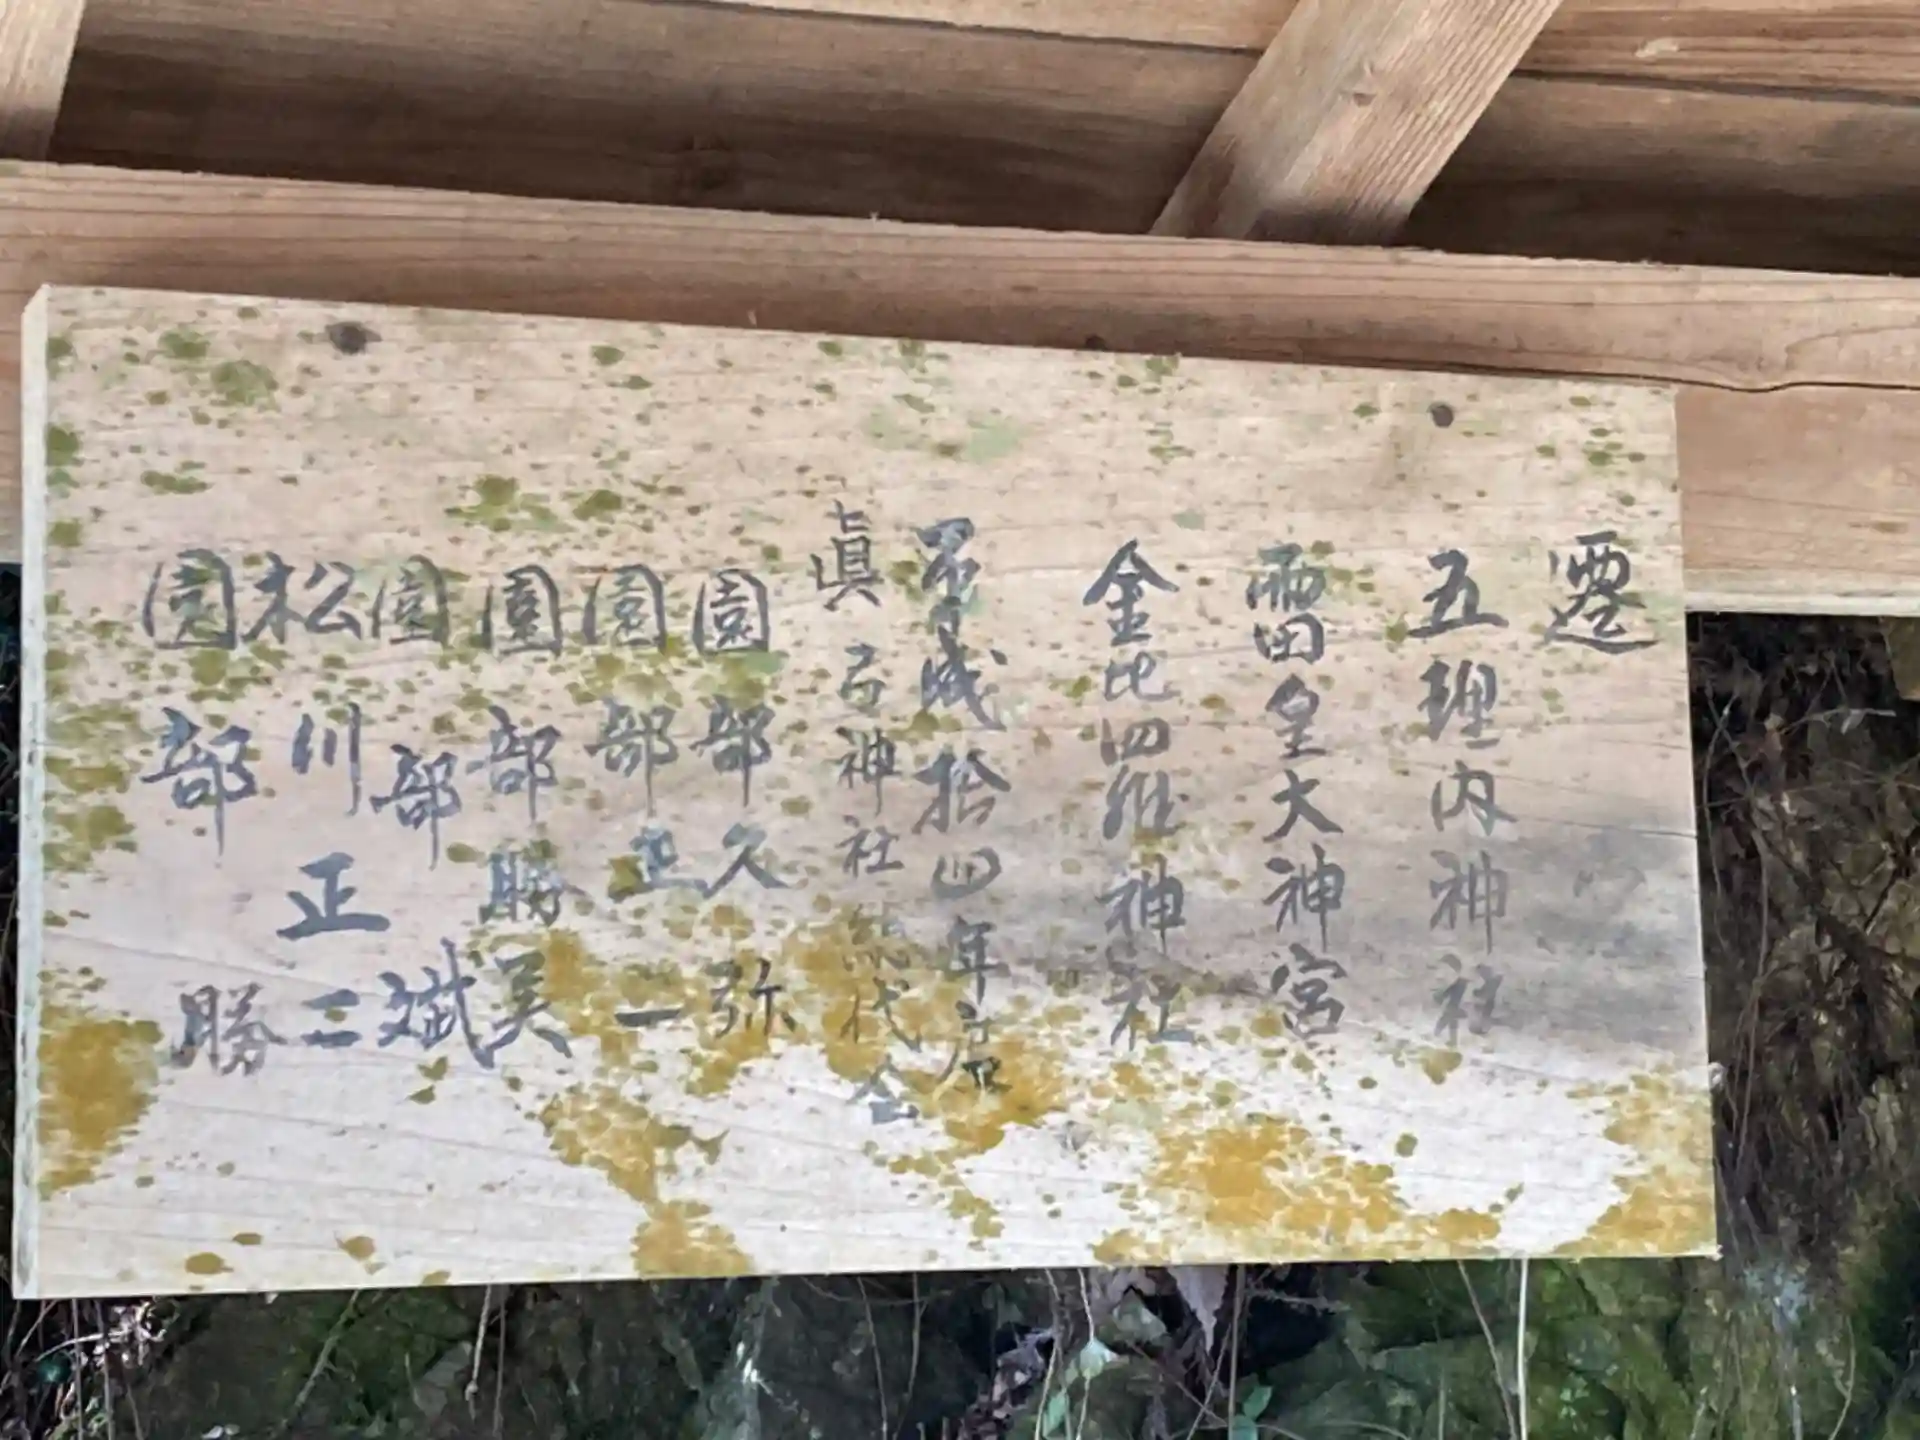 遷
五理内神社
雷皇大神宮
金比四羅神社
平成拾四年度
眞弓神社総代会
園部久弥
園部正一
園部勝美
園部斌
松川正二
園部勝